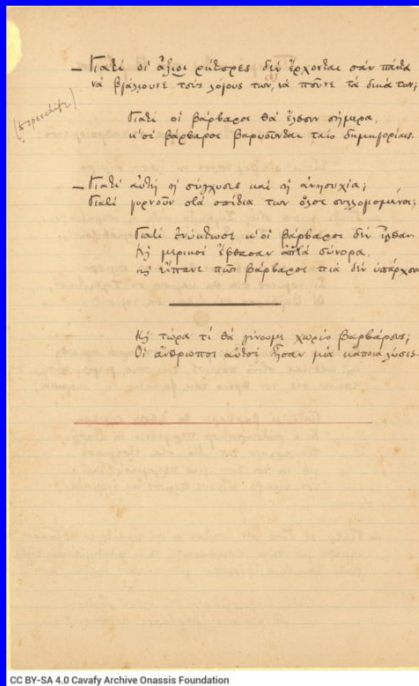 — Γιατί οἱ ἄξιοι ρήτορες δὲν ἔρχονται σὰν πάντα
νὰ βγάλουνε τοὺς λόγους των, νὰ ποῦνε τὰ δικά των;
Γιατὶ οἱ βάρβαροι θὰ ἔλθουν σήμερα,
κ' οἱ βάρβαροι βαρυοῦνται ταὶς δημηγορίαις.
— Γιατὶ αὐτὴ ἡ σύγχυσις καὶ ἡ ἀνησυχία;
Γιατὶ γυρνοῦν στὰ σπίτια των ὅλοι συλλογισμένοι;
Γιατὶ ἐνύκτωσε κ' οἱ βάρβαροι δὲν ἦλθαν.
Κῃ μερικοὶ ἔφθασαν ἀπ' τὰ σύνορα,
κῃ εἴπανε πῶς βάρβαροι πιὰ δὲν ὑπάρχουν.
Κῃ τώρα τί θὰ γίνουμε χωρὶς βαρβάρους;
Οἱ ἄνθρωποι αὐτοὶ ἦσαν μιὰ κάποια λύσις.
CC BY-SA 4.0 Cavafy Archive Onassis Foundation